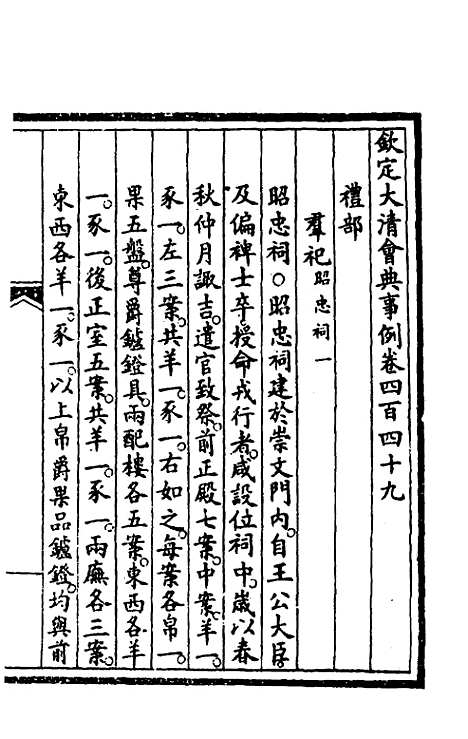 欽定大清會典事例卷四百四十九
禮部
羣祀昭忠祠一
昭忠祠○昭忠祠建於崇文門內。自王公大臣。
及偏裨士卒授命戎行者。咸設位祠中。歲以春
秋仲月諏吉。遣官致祭。前正殿七案。中案。羊一。
豕一。左三案。共羊一。豕一。右如之。每案各帛一。
果五盤。尊爵鑪鐙具。兩配樓各五案。東西各羊
一。豕一。後正室五案。共羊一。豕一。兩廡各三案。
東西各羊一。豕一。以上帛爵果品鑪鐙。均與前